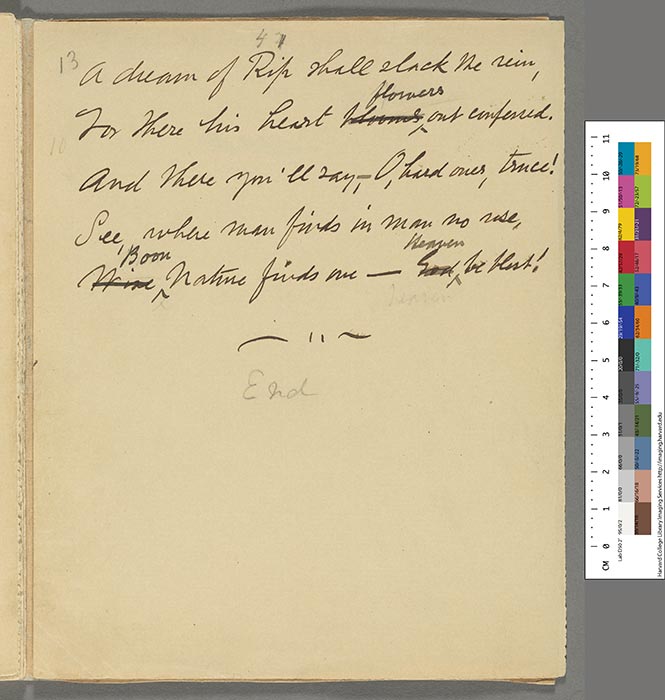 47
13
A dream of Rip shall slack the rein,
flowers
For there his heart blooms out conferred.
10
And there you'll say,— O, hard ones, truce!
See, where man finds in man no use,
Boon Heaven
Wise Nature finds one — God be blest!
heaven
— " —
End
CM 0 1 2 3 4 5 6 7 8 9 10 11
Harvard College Library Imaging Services http://imaging.harvard.edu